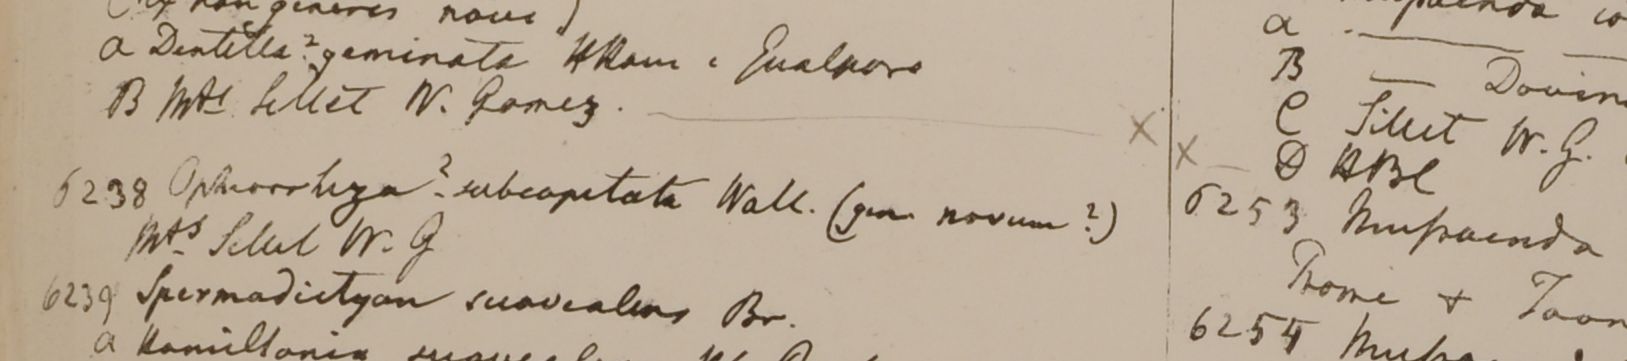 (ex han generis novi)
a Dentella? geminata HHam. Gualpara
B Mts Sillet W. Gomez.
6238 Ophiorrhiza? subcapitata Wall. (gen novum?)
Mts Sillet W. G
6239 Spermadictyon suaveolens Br.
a Hamiltonia
a
B
C Sillet W. G.
D HBC
6253 Mussaenda
Prome + Taon
6254